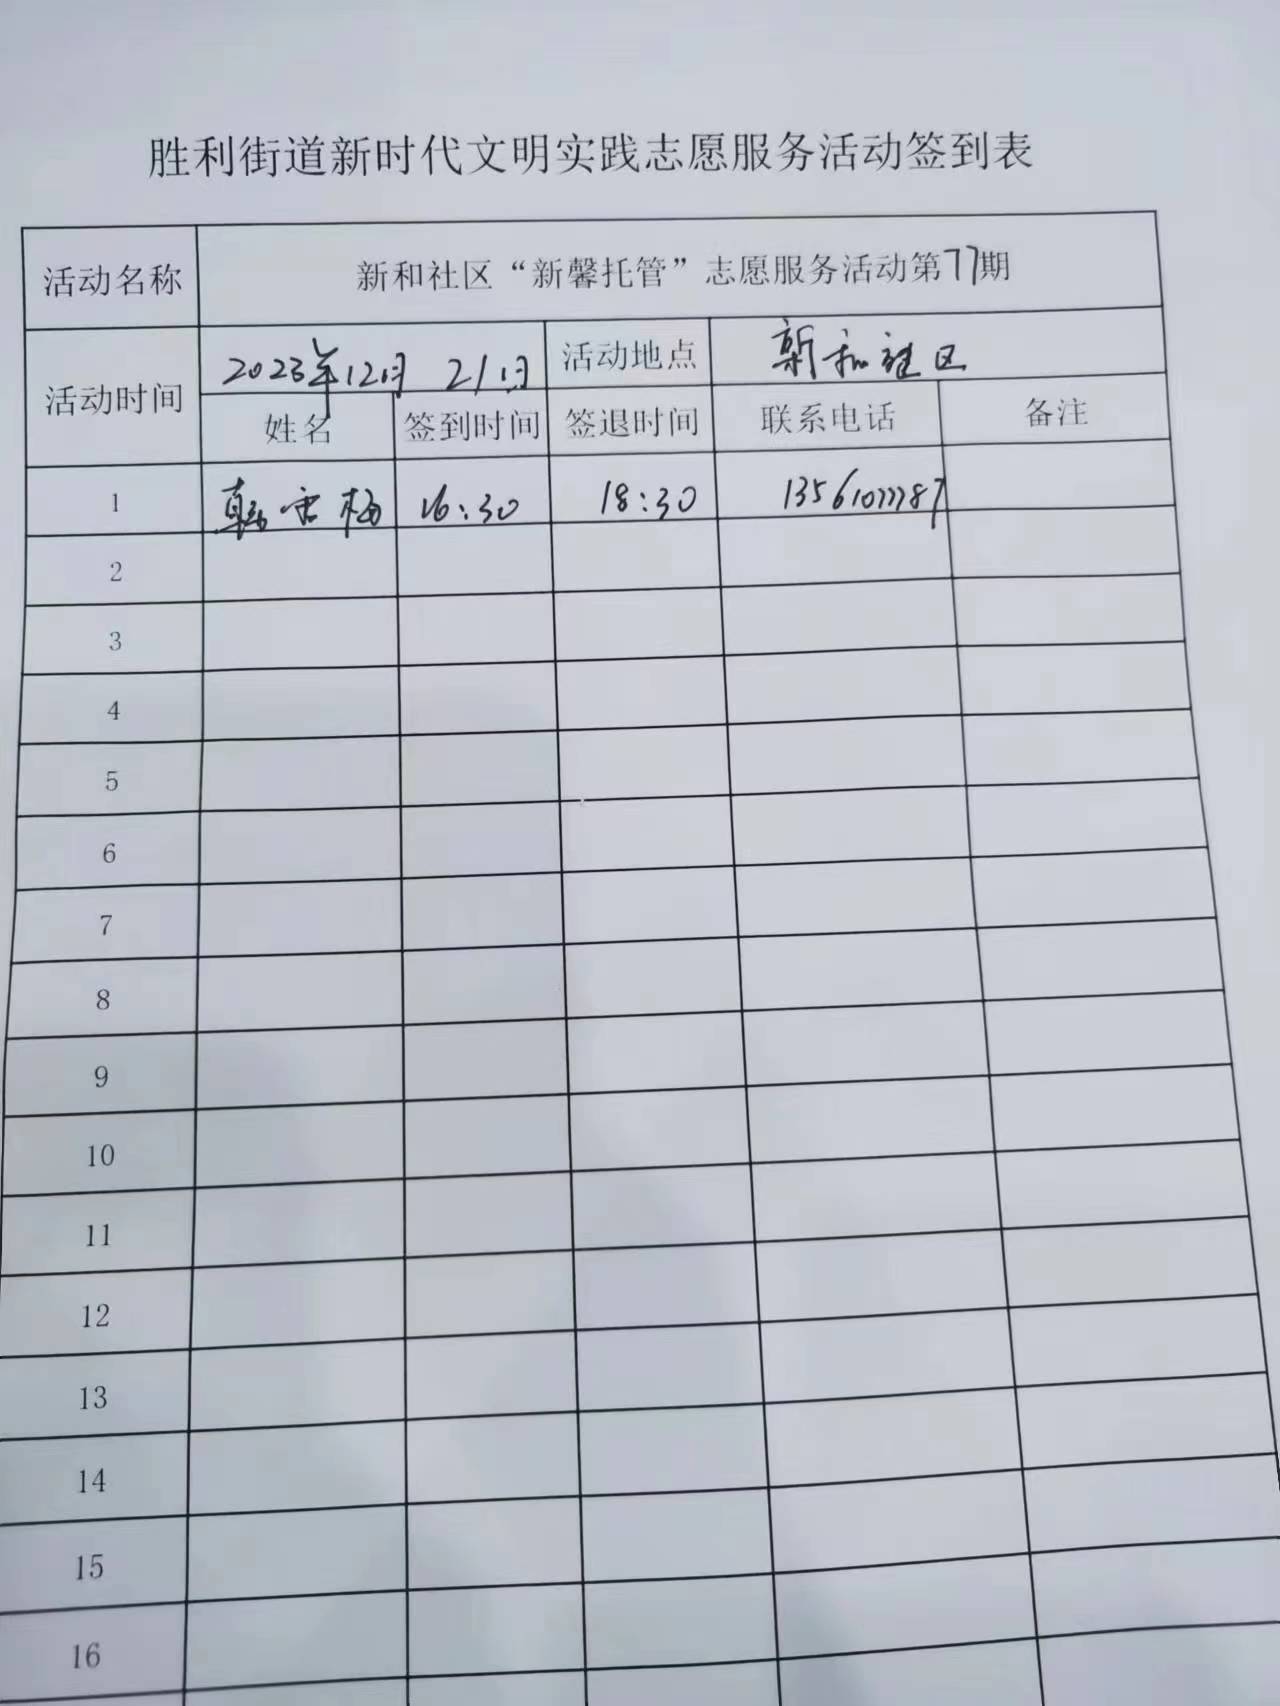 胜利街道新时代文明实践志愿服务活动签到表
活动名称 新和社区“新馨托管”志愿服务活动第77期
活动时间 2023年12月21日 活动地点 新和社区
姓名 签到时间 签退时间 联系电话 备注
1 韩雪梅 16:30 18:30 13561077787
2
3
4
5
6
7
8
9
10
11
12
13
14
15
16